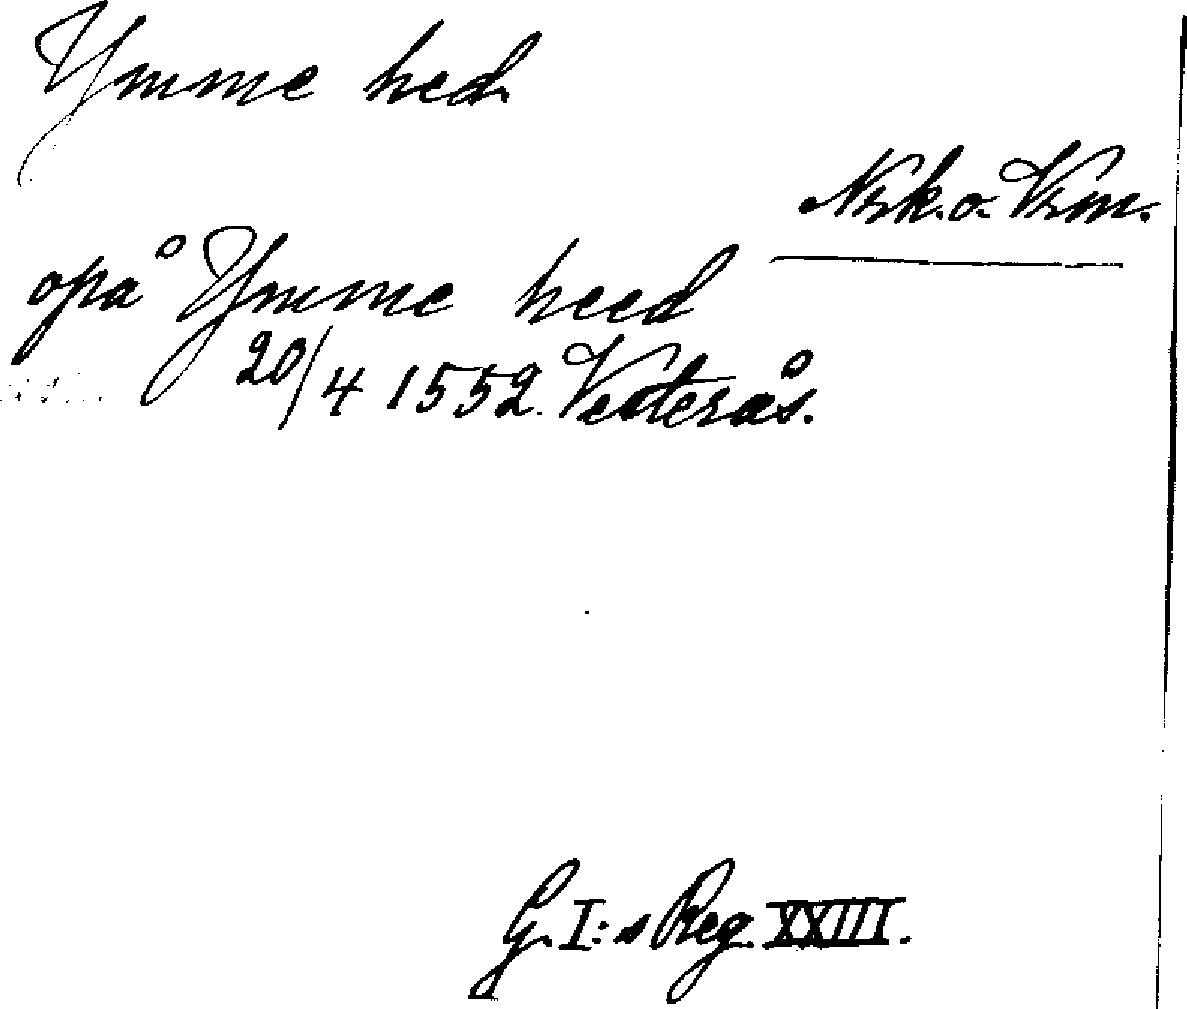 Ymme hed.
Nrk. o. Vsm.
opå Ymme heed
20/4 1552. Vesterås.
G. I:s Reg. XXIII.